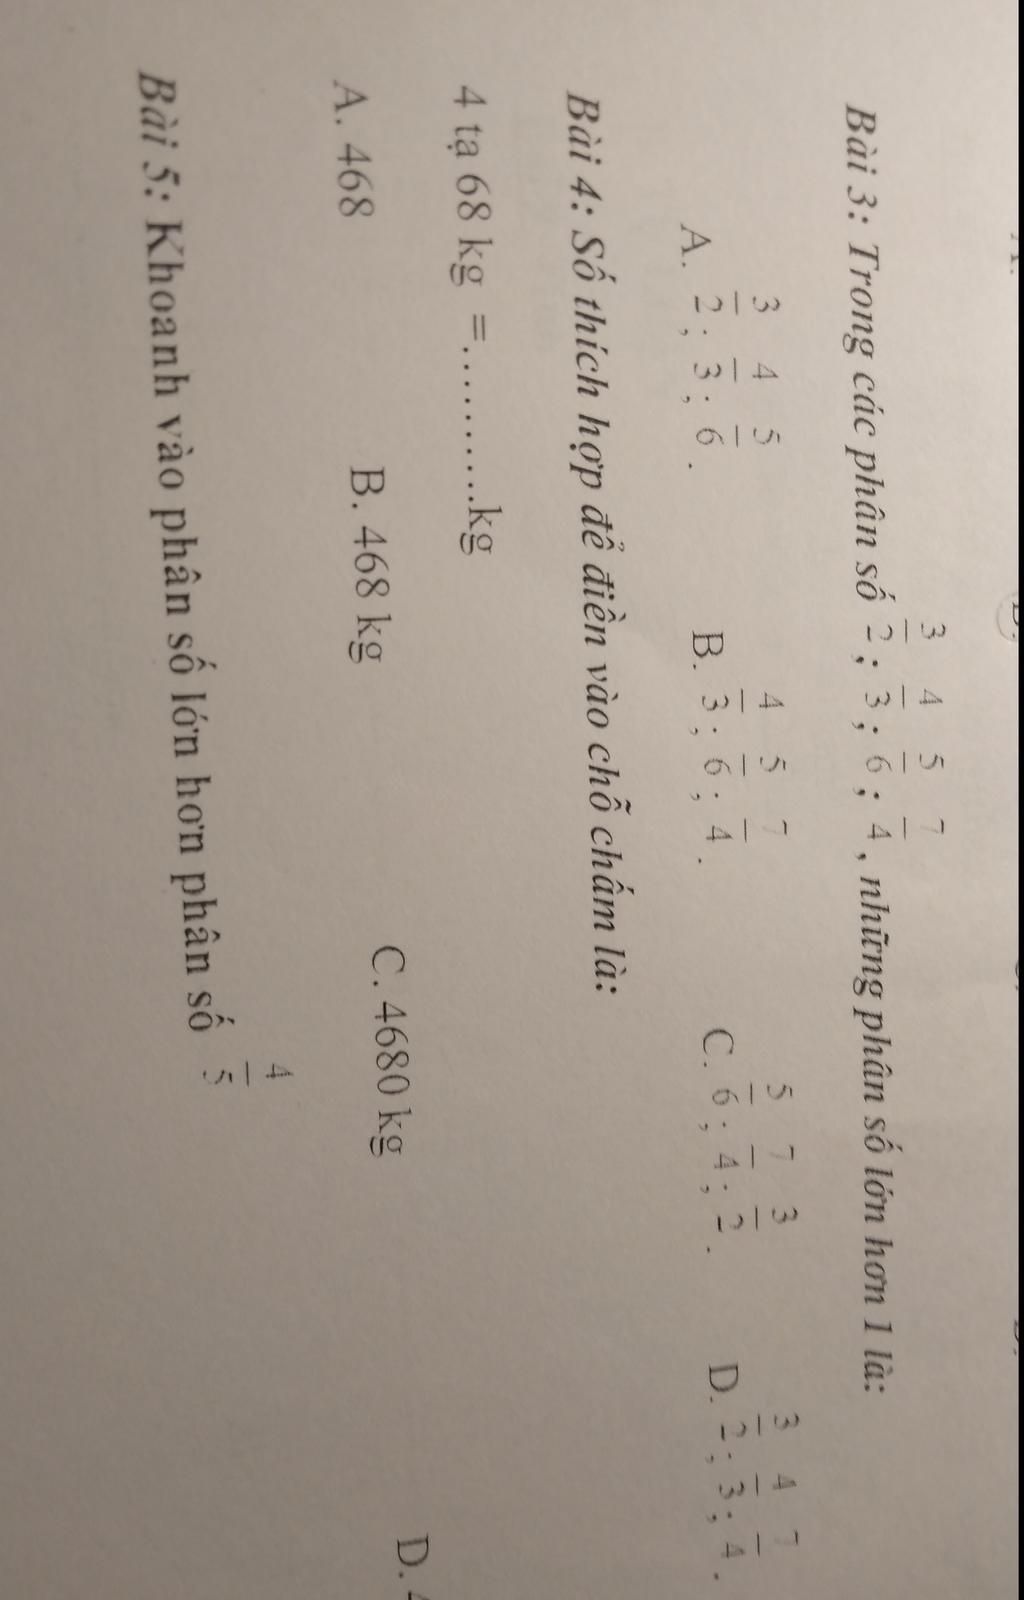 Bài 3: Trong các phân số 3/2; 4/3; 5/6; 7/4, những phân số lớn hơn 1 là:
A. 3/2; 4/3; 5/6. B. 4/3; 5/6; 7/4. C. 5/6; 7/4; 3/2. D. 3/2; 4/3; 7/4.
Bài 4: Số thích hợp để điền vào chỗ chấm là:
4 tạ 68 kg =..........kg
A. 468 B. 468 kg C. 4680 kg D.
Bài 5: Khoanh vào phân số lớn hơn phân số 4/5